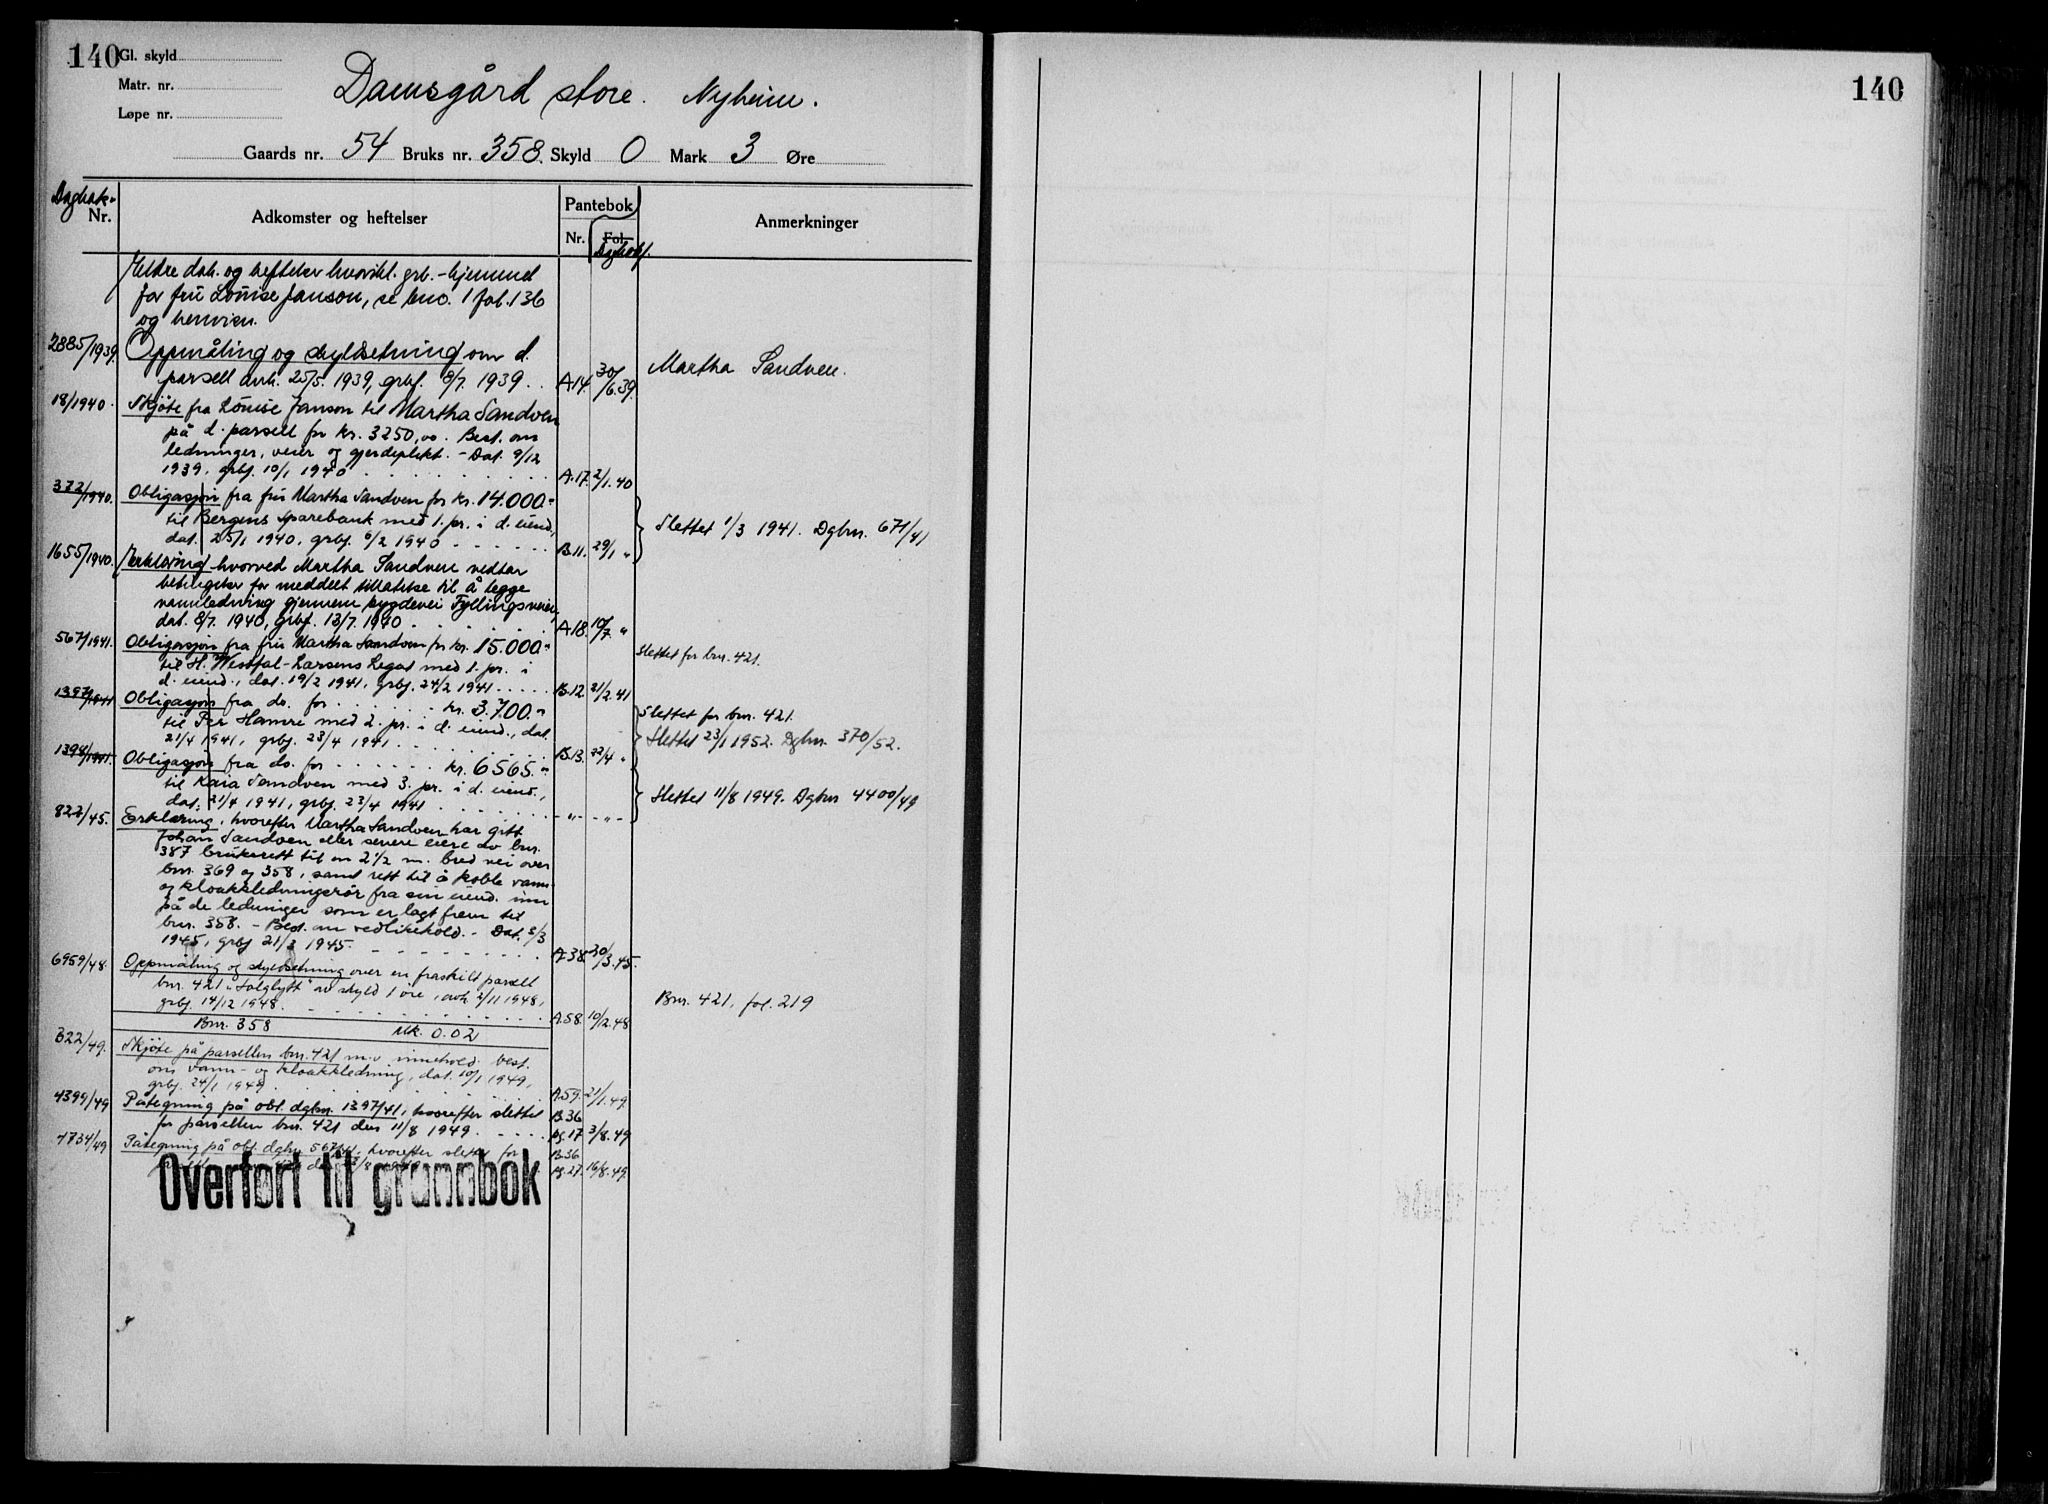 140
Gl. skyld
Matr. nr.
Løpe nr.
Damsgård store. Nyheim.
Gaards nr. 54 Bruks nr. 358. Skyld 0 Mark 3 Øre
Dagbok-
Nr.
Adkomster og heftelser
Pantebok
Nr.
Fol.
Dagbokf.
Anmerkninger
Eldre dok. og heftelser hvoribl. grb.-hjemmel
for fru Louise Janson, se bno. 1 fol. 136
og henvisn.
2885/1939. Oppmåling og skyldsetning over d.
parsell avh. 25/5. 1939, grbf. 8/7. 1939 . . A.14. 30/6.39. Martha Sandven.
18/1940. Skjøte fra Louise Janson til Martha Sandven
på d. parsell for kr. 3250,00. Best. om
ledninger, veier og gjerdeplikt. - Dat. 9/12
1939, grbf. 10/1 1940 A.17. 2/1.40
372/1940. Obligasjon fra fru Martha Sandven for kr. 14.000.-
til Bergens Sparebank med 1. pr. i d. eiend., Slettet 1/3 1941. Dgbnr. 671/41
dat. 25/1 1940, grbf. 6/2 1940 B.11. 29/1 "
1655/1940. Erklæring hvorved Martha Sandven vedtar
betingelser for meddelt tillatelse til å legge
vannledning gjennem bygdevei Fyllingsveien,
dat. 8/7. 1940, grbf. 13/7. 1940 A.18. 10/7 "
567/1941. Obligasjon fra fru Martha Sandven for kr. 15.000.-
til H. Westfal-Larsens Legat med 1. pr. i Slettet for bnr. 421.
d. eiend., dat. 19/2 1941, grbf. 24/2 1941 B.12. 21/2.41
1397/1941 Obligasjon fra do. for kr. 3.700.-
til Per Hamre med 2. pr. i d. eiend., dat. Slettet for bnr. 421.
21/4 1941, grbf. 23/4 1941 B.13. 22/4 " Slettet 23/1 1952. Dgbnr. 370/52.
1398/1941. Obligasjon fra do. for kr. 6565.-
til Kaia Sandven med 3. pr. i d. eiend.,
dat. 21/4 1941, grbf. 23/4 1941 - " - - " - Slettet 11/8 1949. Dgbnr 4400/49
822/45. Erklæring, hvorefter Martha Sandven har gitt
Johan Sandven eller senere eiere av bnr.
387 bruksrett til en 2 1/2 m. bred vei over
bnr. 369 og 358, samt rett til å koble vann-
og kloakkledningsrør fra sin eiend. inn
på de ledninger som er lagt frem til
bnr. 358. - Best. om vedlikehold. - Dat. 5/3
1945, grbf 21/3 1945. A.38. 20/3.45.
6959/48. Oppmåling og skyldsetning over en fraskilt parsell
bnr. 421 "Solglytt" av skyld 1 øre, avh. 2/11 1948,
grbf. 14/12 1948. A.58. 10/12.48 Bnr. 421, fol. 219
Bnr. 358 Mk. 0.02
322/49. Skjøte på parsellen bnr. 421 m.v. innehold. best.
om vann- og kloakkledning, dat. 10/1 1949,
grbf. 24/1 1949 A.59. 21/1.49.
4399/49 Påtegning på obl. dgbnr. 1397/41, hvorefter slettet B.36
for parsellen bnr. 421 den 11/8 1949. pg.17 3/8.49
4734/49 Påtegning på obl. dgbnr. 567/41, hvorefter slettet for B.36
pg.27. 16/8.49.
Overført til grunnbok
140